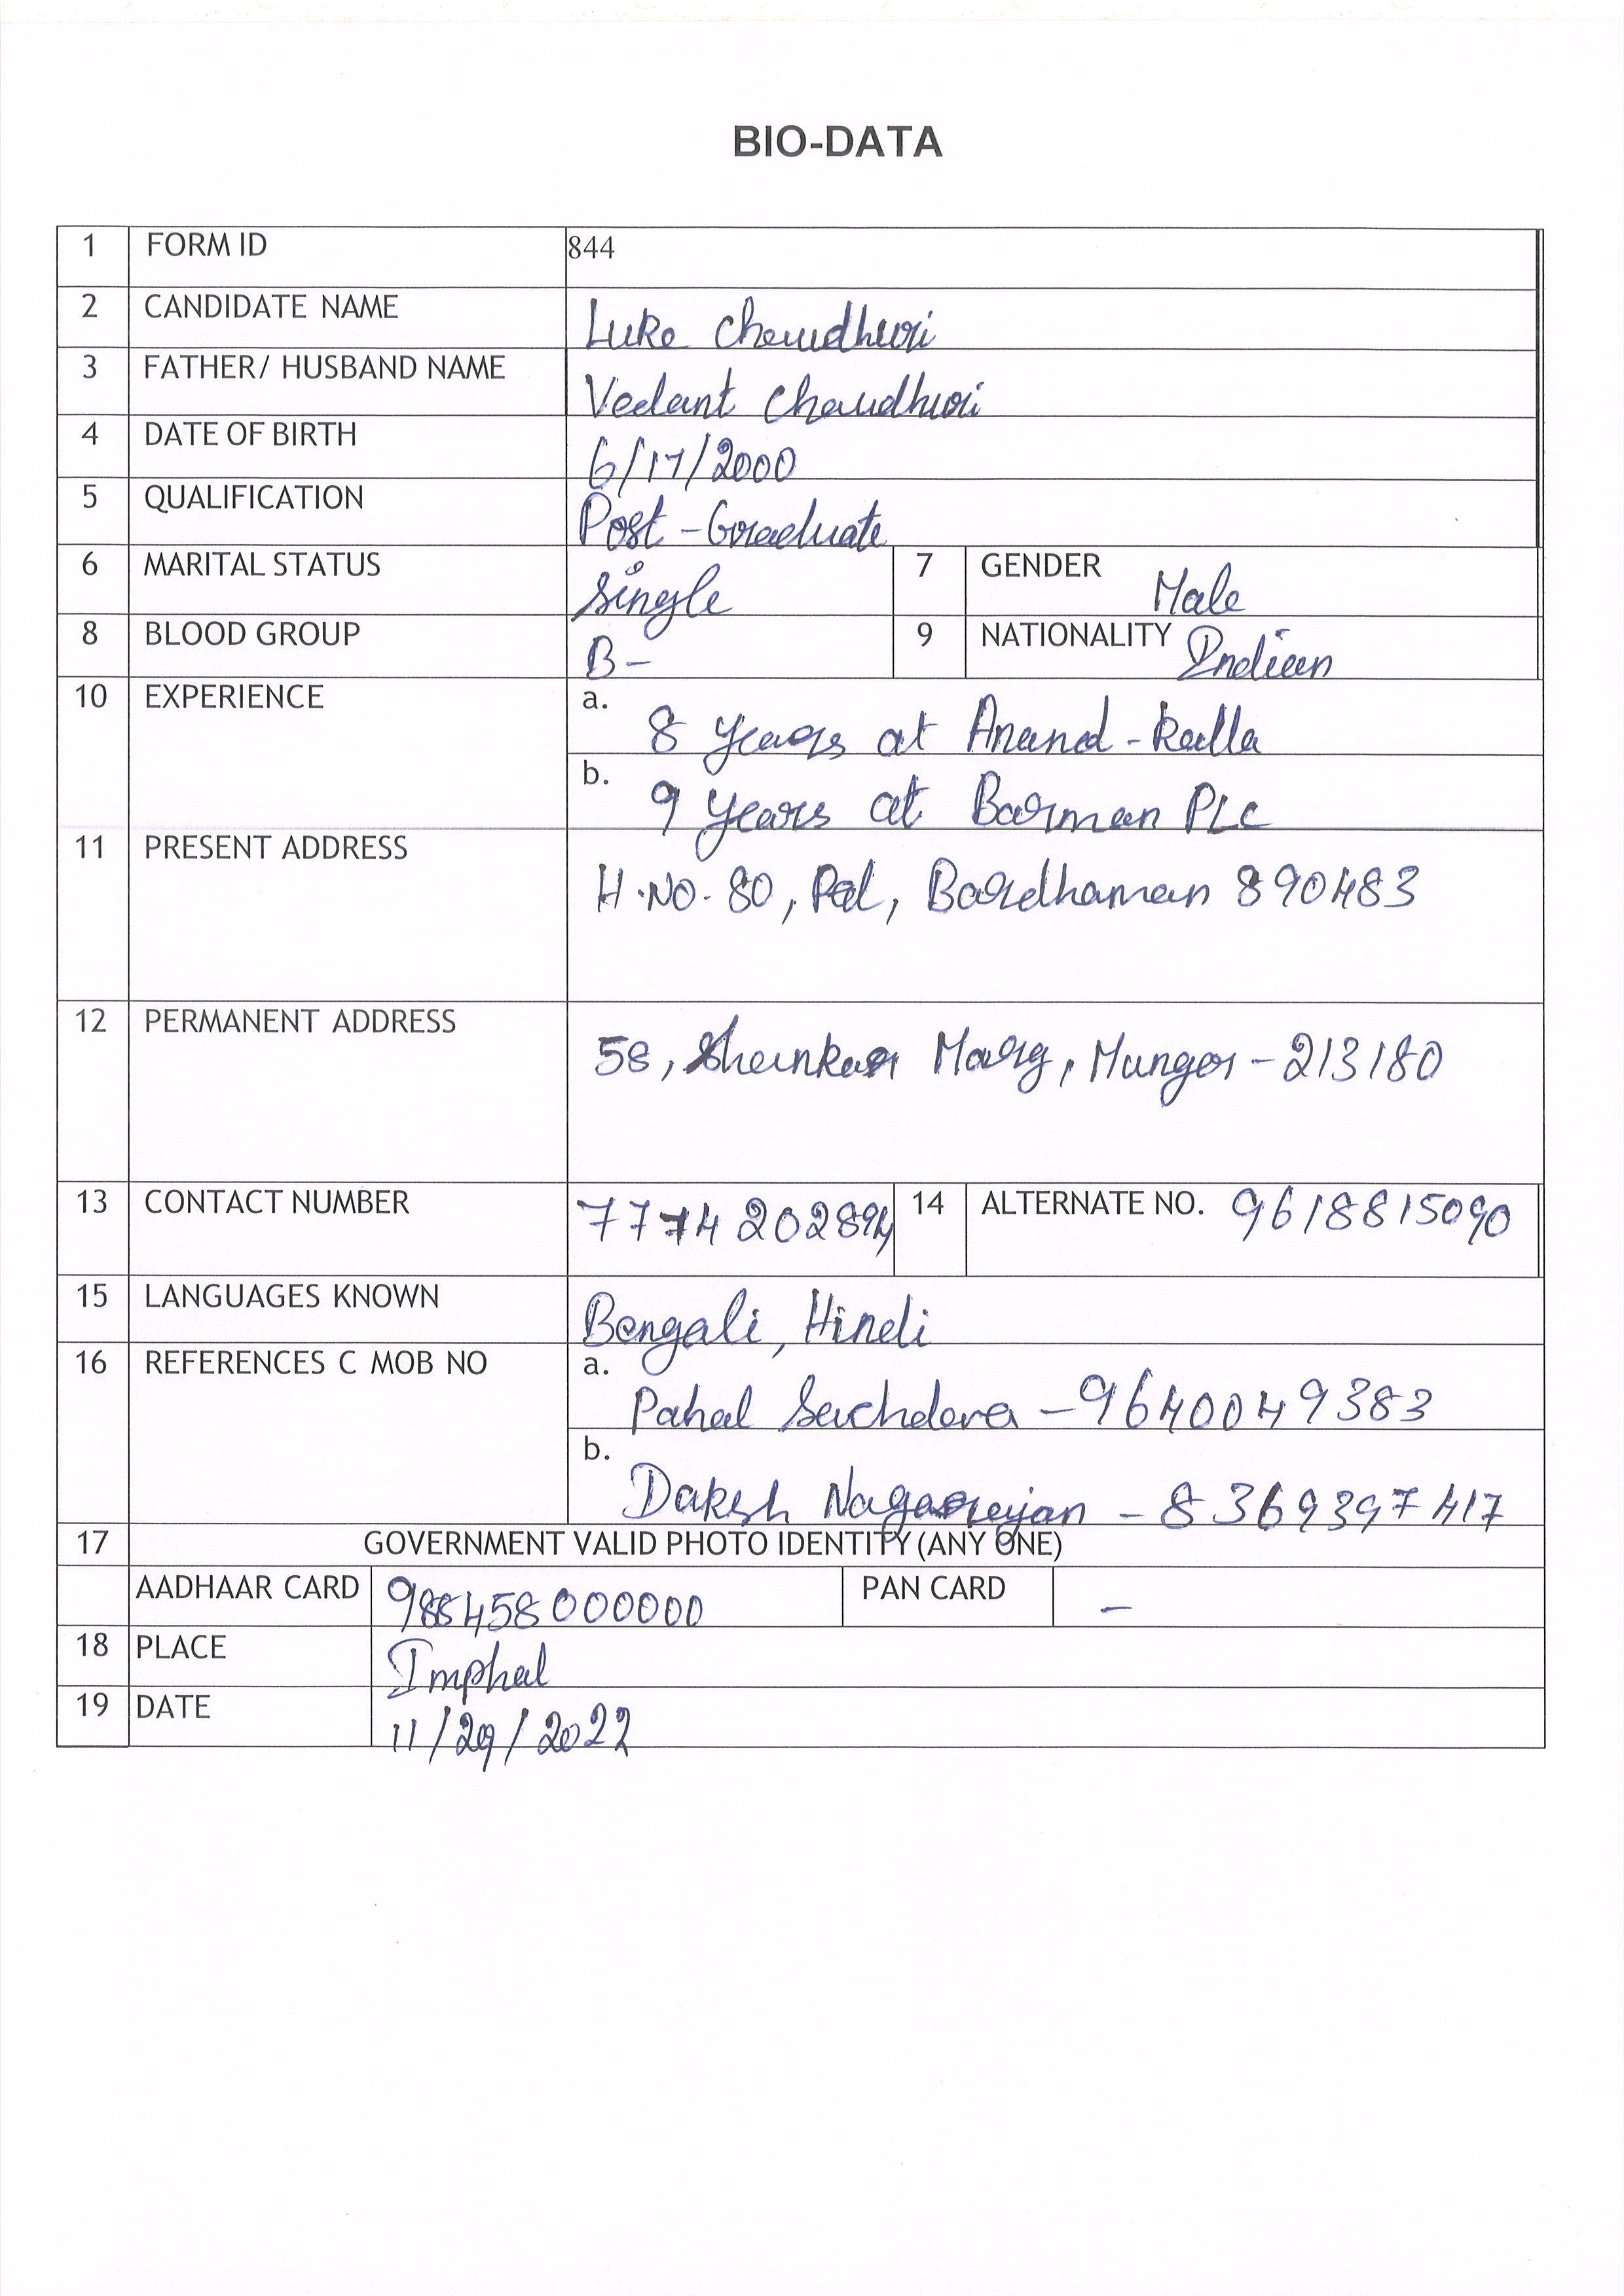 BIO-DATA
1 FORM ID 844
2 CANDIDATE NAME Luke Chaudhuri
3 FATHER/ HUSBAND NAME Vedant Chaudhuri
4 DATE OF BIRTH 6/17/2000
5 QUALIFICATION Post-Graduate
6 MARITAL STATUS Single 7 GENDER Male
8 BLOOD GROUP B- 9 NATIONALITY Indian
10 EXPERIENCE a. 8 years at Anand-Kalla
b. 9 years at Barman PLC
11 PRESENT ADDRESS H.NO. 80, Pal, Bardhaman 890483
12 PERMANENT ADDRESS 58, Shankar Marg, Munger - 213180
13 CONTACT NUMBER 7774202894 14 ALTERNATE NO. 9618815090
15 LANGUAGES KNOWN Bengali, Hindi
16 REFERENCES C MOB NO a. Pahal Sachdeva - 9640049383
b. Daksh Nagarajan - 8369397417
17 GOVERNMENT VALID PHOTO IDENTITY (ANY ONE)
AADHAAR CARD 988458000000 PAN CARD -
18 PLACE Imphal
19 DATE 11/29/2022